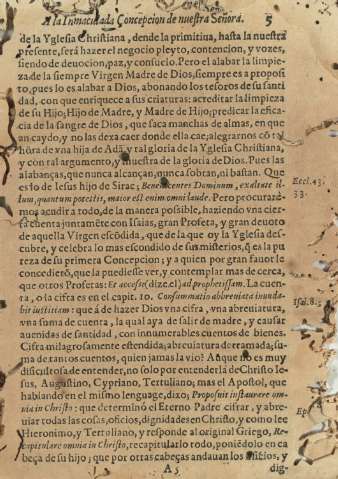 A la Inmaculada Concepcion de nuestra Señora. 5
de la Yglesia Christiana, dende la primitiua, hasta la nuestra
presente, será hazer el negocio pleyto, contencion, y vozes,
siendo de deuocion, paz, y consucio. Pero el alabar la limpie-
za de la siempre Virgen Madre de Dios, siempre es a proposi-
to, pues lo es alabar a Dios, abonando los tesoros de su santi
dad, con que enriquece a sus criaturas: acreditar la limpieza
de su Hijo; Hijo de Madre, y Madre de Hijo; predicar la efica-
cia de la sangre de Dios, que saca manchas de almas, en que
an caydo, y no las dexa caer donde ella cae; alegrarnos cõ tal
hõra de vna hija de Adã y tal gloria de la Yglesia Christiana,
y con tal argumento, y muestra de la gloria de Dios. Pues las
alabanças, que nunca alcançan, nunca sobran, ni bastan. Que
es lo de Iesus hijo de Sirac; Benedicentes Dominum, exaltate il-
lum, quantum potestis, maior est enim omni laude. Pero procurarè-
mos acudir a todo, de la manera possible, haziendo vna cier-
ta cuenta juntamẽte con Isaias, gran Profeta, y gran deuoto
de aquella Virgen escõdida, que de la que oy la Yglesia des-
cubre, y celebra lo mas escondido de sus misterios, q̃ es la pu
reza de su primera Concepcion; y a quien por gran fauor le
concedierõ, que la pudiesse ver, y contemplar mas de cerca,
que otros Profetas: Et accessi (dize el) ad prophetissam. La cuen-
ta, o la cifra es en el capit. 10. Consummatio abbreuiata inunda-
bit iustitiam: que â de hazer Dios vna cifra, vna abreuiatura,
vna suma de cuenta, la qual aya de salir de madre, y causar
auenidas de santidad, con innumerables cuentos de bienes.
Cifra milagrosamente estendida; abreuiatura derramada; su-
ma de tantos cuentos, quien jamas la vio? Aũque no es muy
discultosa de entender, no solo por entenderla de Christo Ie-
sus, Augustino, Cypriano, Tertuliano; mas el Apostol, que
hablando en el mismo lenguaje, dixo; Proposuit instaurare om-
nia in Christo: que determinò el Eterno Padre cifrar, y abre-
uiar todas las cosas, oficios, dignidades en Christo, y como lee
Hieronimo, y Tertoliano, y responde al original Griego, Re-
capitulare omnia in Christo, recapitularlo todo, poniẽdolo en ca
beça de su hijo; que por otras cabeças andauan los oficios, y
A 5 dig-
Eccl. 43.
33.
Isai. 8.